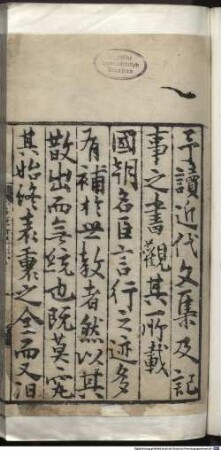 予讀近代文集及記
事之書觀其所載
國朝名臣言行之迹多
有補於世教者然以其
散出而無統也既莫究
其始終表裏之全而又汩